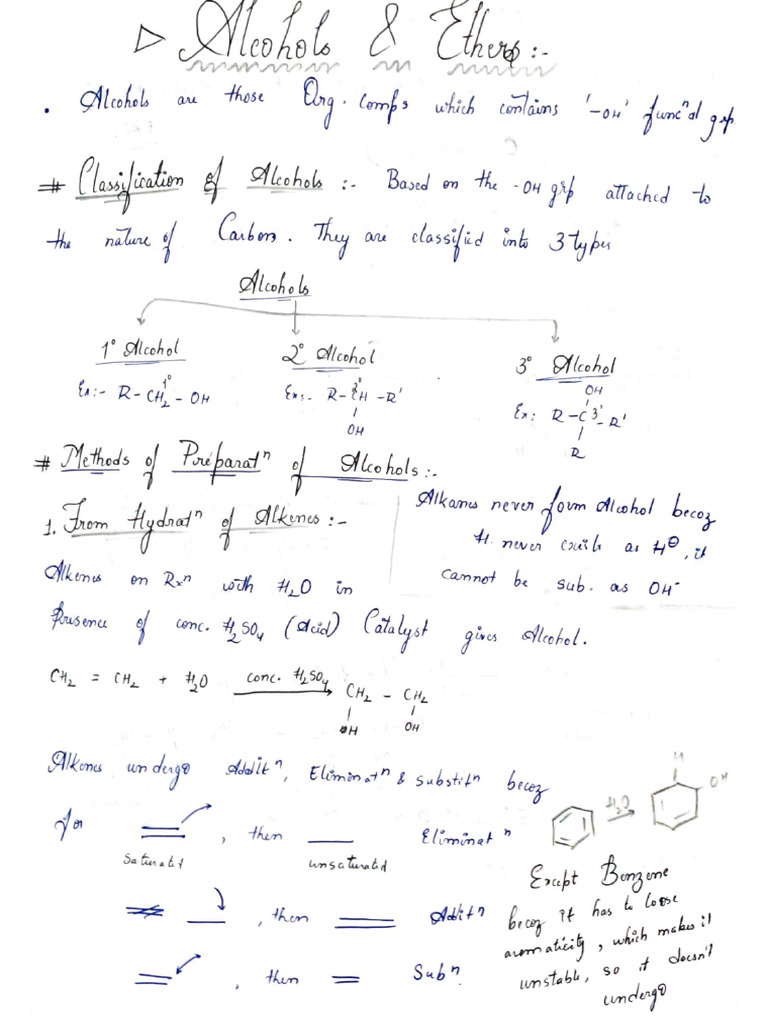 ▷ Alcohols & Ethers :-
• Alcohols are those Org. Comps which contains '-OH' funcⁿal grp
# Classification of Alcohols :- Based on the -OH grp attached to
the nature of Carbon. They are classified into 3 types
Alcohols
1° Alcohol 2° Alcohol 3° Alcohol
Ex:- R - CH₂ - OH
1°
Ex:- R - CH - R'
2°
OH
OH
Ex: R - C - R'
3°
R
# Methods of Preparatⁿ of Alcohols :-
1. From Hydratⁿ of Alkenes :-
Alkanes never form Alcohol becoz
H. never exists as H⊖, it
cannot be sub. as OH⁻
Alkenes on Rxⁿ with H₂O in
Presence of conc. H₂SO₄ (Acid) Catalyst gives Alcohol.
CH₂ = CH₂ + H₂O conc. H₂SO₄ CH₂ - CH₂
OH OH
Alkenes undergo Additⁿ, Eliminatⁿ & substitⁿ becoz
for , then Eliminatⁿ
Saturated unsaturated
, then Additⁿ
, then Subⁿ.
H₂O H OH
Except Benzene
becoz it has to loose
aromaticity, which makes it
unstable, so it doesn't
undergo